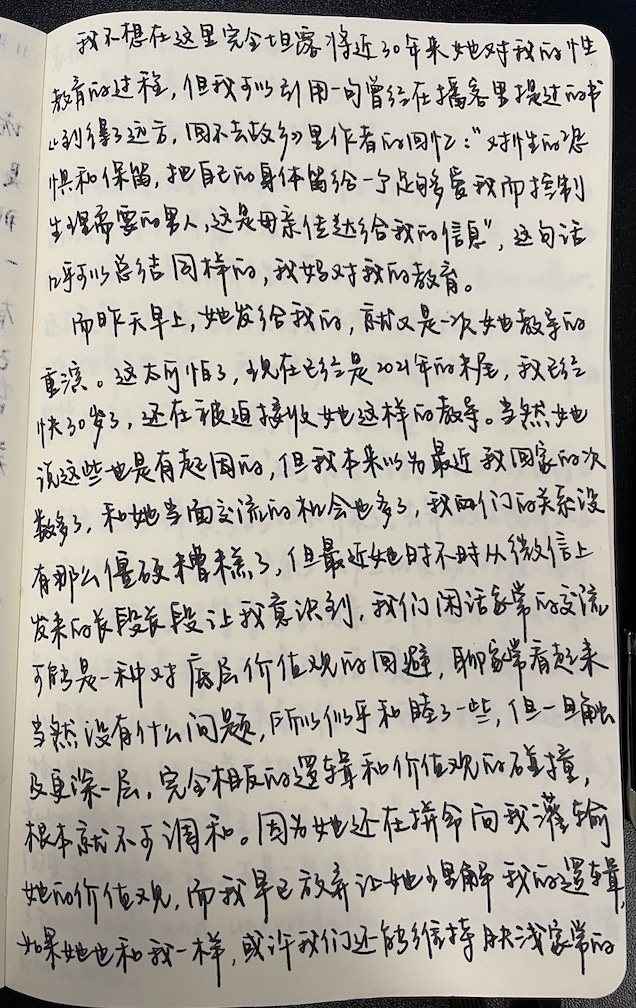 我不想在这里完全坦露将近30年来她对我的性
教育的过程，但我可以引用一句曾经在播客里提过的书
《到得了远方，回不去故乡》里作者的回忆：“对性的恐
惧和保留，把自己的身体留给一个足够爱我而控制
生理需要的男人，这是母亲传达给我的信息”，这句话
几乎可以总结同样的，我妈对我的教育。
而昨天早上，她发给我的，就又是一次她教导的
重演。这太可怕了，现在已经是2021年的末尾，我已经
快30岁了，还在被迫接收她这样的教导。当然她
说这些也是有起因的，但我本来以为最近我回家的次
数多了，和她当面交流的机会也多了，我们的关系没
有那么僵硬糟糕了，但最近她时不时从微信上
发来的长段长段让我意识到，我们闲话家常的交流
可能是一种对底层价值观的回避，聊家常看起来
当然没有什么问题，所以似乎和睦了一些，但一旦触
及更深一层，完全相反的逻辑和价值观的碰撞，
根本就不可调和。因为她还在拼命向我灌输
她的价值观，而我早已放弃让她理解我的逻辑，
如果她也和我一样，或许我们还能维持肤浅家常的